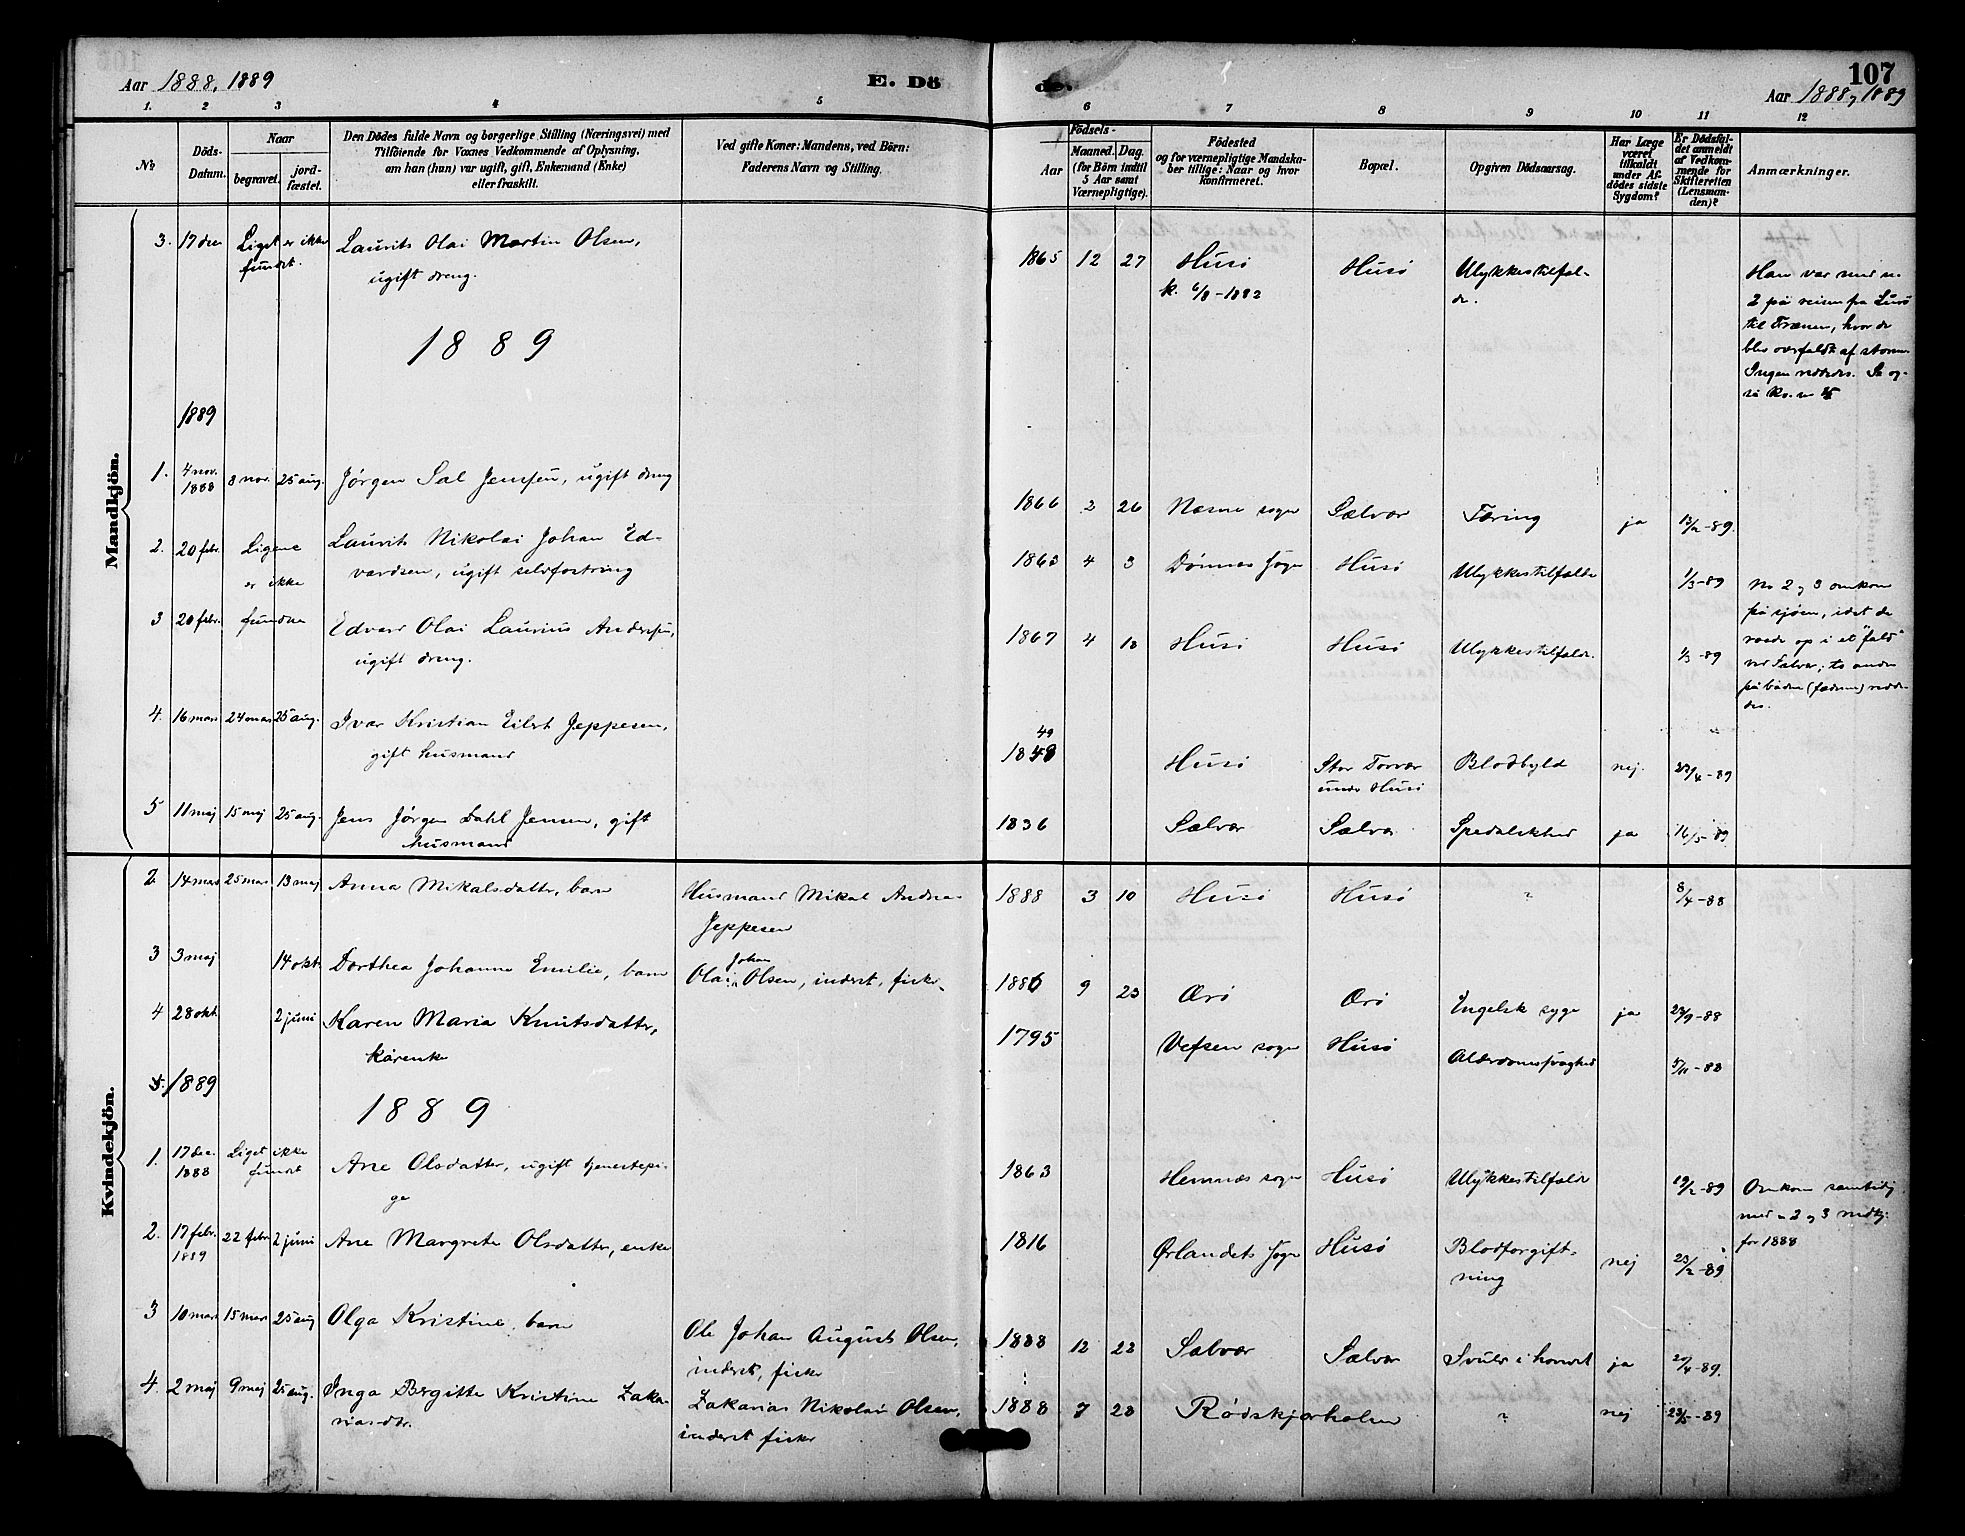 Aar 1888, 1889
E. Dö
de.
107
Aar 1888, 1889
1. 2 3 4 5 6 7 8 9 10 11 12
No
Döds-Datum.
Naar
begravet.
jord-fæstet.
Den Dödes fulde Navn og borgerlige Stilling (Næringsvei) med
Tilföiende for Voxnes Vedkommende af Oplysning,
om han (hun) var ugift, gift, Enkemand (Enke)
eller fraskilt.
Ved gifte Koner: Mandens, ved Börn:
Faderens Navn og Stilling.
Födsels-
Aar
Maaned. Dag.
(for Börn indtil
5 Aar samt
Værnepligtige).
Födested
og for værnepligtige Mandska-
ber tillige: Naar og hvor
Konfirmeret.
Bopæl.
Opgiven Dödsaarsag.
Har Læge
været
tilkaldt
under Af-
dödes sidste
Sygdom?
Er Dödsfal-
det anmeldt
af Vedkom-
mende for
Skifteretten
(Lensman-
den)?
Anmærkninger.
Mandkjön.
3. 17 dec Liget er ikke Laurits Olai Martin Olsen, 1865 12 27 Husö Husö Ulykkestilfæl-
fundet. ugift dreng. k. 6/8-1882 de.
Han var med n.
2 på reisen fra Lurö
til Trænen, hvor de
blev overfaldt af storm.
Ingen reddedes. Se og-
så
1889
1889
1. 4 nov. 1888 8 nov. 25 aug. Jørgen Sal Jenssen, ugift dreng 1866 2 26 Næsne sogn Sælvær Tæring ja 13/2-89.
2. 20 febr. Ligene Laurits Nikolai Johan Ed- 1863 4 3 Dönnes sogn Husö Ulykkestilfælde 1/3-89
er ikke vardsen, ugift selvfostring
No 2 og 3 omkom
på sjøen, idet de
roede op i et "fald"
ved Salvær; to andre
på båden (fædrene) redde-
des.
3 20 febr. fundne Edvard Olai Laurius Anderssen, 1867 4 13 Husö Husö Ulykkestilfælde. 1/3-89
ugift dreng.
4. 16 mars 24 mars 25 aug. Ivar Kristian Eilert Jeppesen, 49 1848 Husö Stor Torvær Blodbyld nej. 22/4-89
gift husmand under Husö
5 11 maj 15 maj 25 aug. Jens Jørgen Dahl Jensen, gift 1836 Sælvær Sælvær Spedalskhed ja 16/5-89
husmand
Kvindekjön.
2 14 mars 25 mars 13 maj Anna Mikalsdatter, barn Husmand Mikal Andreas 1888 3 10 Husö Husö ? 8/4-88
Jeppesen
3 3 maj 14 okt. Dorthea Johanna Emilie, barn Olai Johan Olsen, inderst, fisker 1886 9 23 Ærö Ærö Engelsk syge ja 28/9-88
4 28 okt. 2 juni Karen Maria Knutsdatter, 1795 Vefsen sogn Husö Alderdomssvaghed 5/11-88
kårenke
5. 1889
1889
1. 17 dec. 1888 Liget ikke fundet Ane Olsdatter, ugift tjenestepi- 1863 Hemnæs sogn Husö Ulykkestilfælde 19/2-89 Omkom samtidig
ge med n 2 og 3 mdkj.
for 1888
2. 17 febr. 1889 22 febr 2 juni Ane Margrete Olsdatter, enke 1816 Ørlandets sogn Husö Blodforgift- nej 23/2-89
ning
3 10 mars 15 mars 25 aug Olga Kristine, barn Ole Johan August Olsen, 1888 12 22 Salvær Sælvær Svulst i hovedet ja 20/4-89.
inderst, fisker
4. 2 maj 9 maj 25 aug. Inga Bergitte Kristine Zaka- Zakarias Nikolai Olsen, 1888 7 28 Rødskjærholmen ? nej 23/5-89
riasdtr. inderst fisker